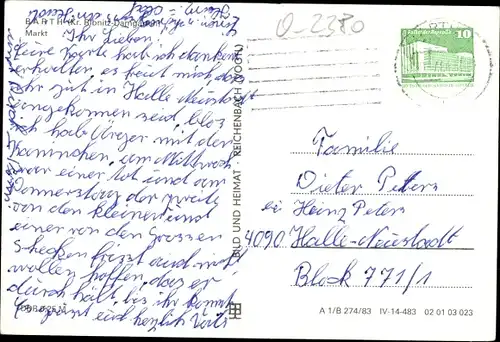 BARTH (Kr. Ribnitz-Damgarten)
Markt
Ihr Lieben!
Eure Karte hab ich dankend
erhalten, es freut mich das
Ihr gut in Halle Neustadt
angekommen seid, blos
ich hab Ärger mit den
Kaninchen, am Mittwoch
war einer tot und am
Donnerstag der zweite
von den kleinen und
einer von den grossen
Schecken frisst auch nicht
wollen hoffen das er
durch hält bis ihr kommt
und herzlich
BILD UND HEIMAT REICHENBACH (VOGTL)
Q-2380
DDR
10
Familie
Dieter Peters
bei Heinz Peters
4090 Halle-Neustadt
Block 771/1
A 1/B 274/83 IV-14-483 02 01 03 023